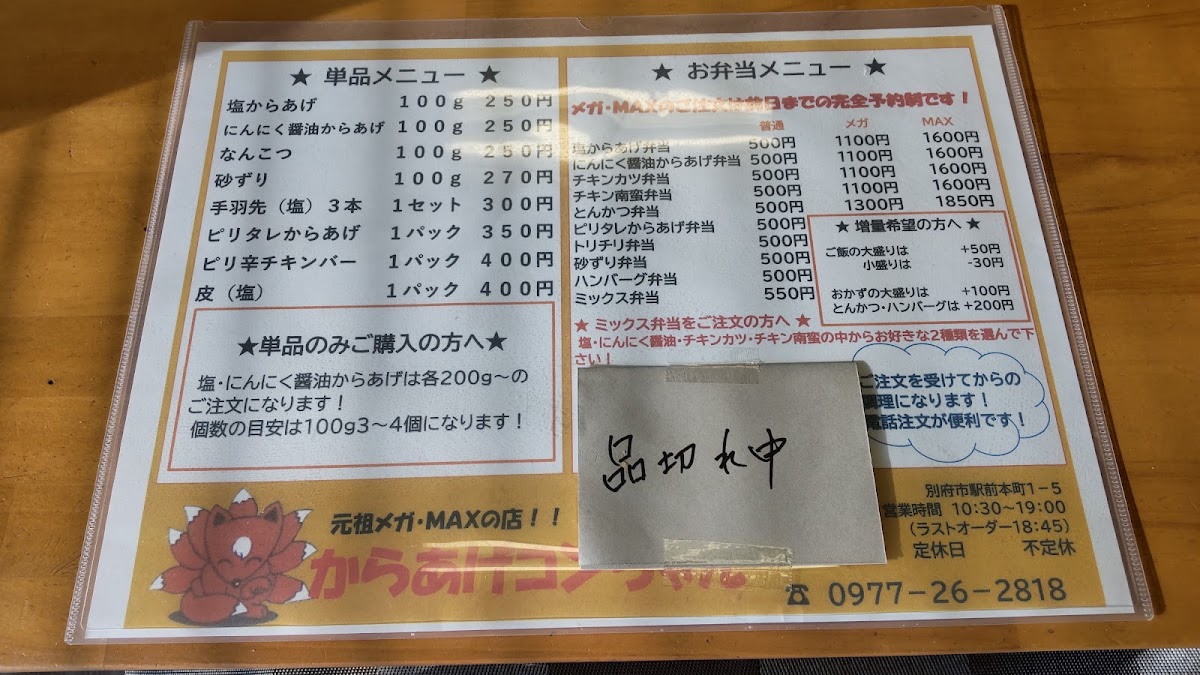 ★ 単品メニュー ★
塩からあげ 100g 250円
にんにく醤油からあげ 100g 250円
なんこつ 100g 250円
砂ずり 100g 270円
手羽先（塩）3本 1セット 300円
ピリタレからあげ 1パック 350円
ピリ辛チキンバー 1パック 400円
皮（塩） 1パック 400円
★単品のみご購入の方へ★
塩・にんにく醤油からあげは各200g～の
ご注文になります！
個数の目安は100g3～4個になります！
★ お弁当メニュー ★
メガ・MAXのご注文は前日までの完全予約制です！
普通 メガ MAX
塩からあげ弁当 500円 1100円 1600円
にんにく醤油からあげ弁当 500円 1100円 1600円
チキンカツ弁当 500円 1100円 1600円
チキン南蛮弁当 500円 1100円 1600円
とんかつ弁当 500円 1300円 1850円
ピリタレからあげ弁当 500円
トリチリ弁当 500円
砂ずり弁当 500円
ハンバーグ弁当 500円
ミックス弁当 550円
★ 増量希望の方へ ★
ご飯の大盛りは +50円
小盛りは -30円
おかずの大盛りは +100円
とんかつ・ハンバーグは +200円
★ ミックス弁当をご注文の方へ ★
塩・にんにく醤油・チキンカツ・チキン南蛮の中からお好きな2種類を選んで下
さい！
品切れ中
ご注文を受けてからの
調理になります！
電話注文が便利です！
元祖メガ・MAXの店！！
からあげコンちゃん
別府市駅前本町1－5
営業時間 10:30～19:00
（ラストオーダー18:45）
定休日 不定休
☎ 0977－26－2818